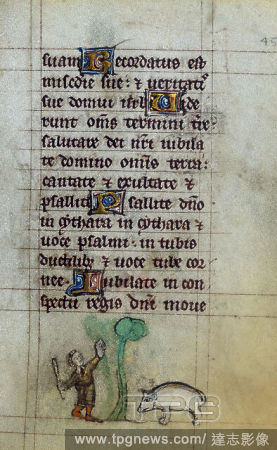 suam Recordatus est
misedie sue: et veritatis
sue domui isrl Vide
runt oms termini tre
salutare dei nri iubila
te domino omis terra:
cantate et exultate et
psallite Psallite dno
in cythara in cythara et
voce psalmi· in tubis
ductilib; et voce tube cor
nee· Iubilate in con
spectu regis dni move
45
TPG
www.tpgnews.com/ 達志影像